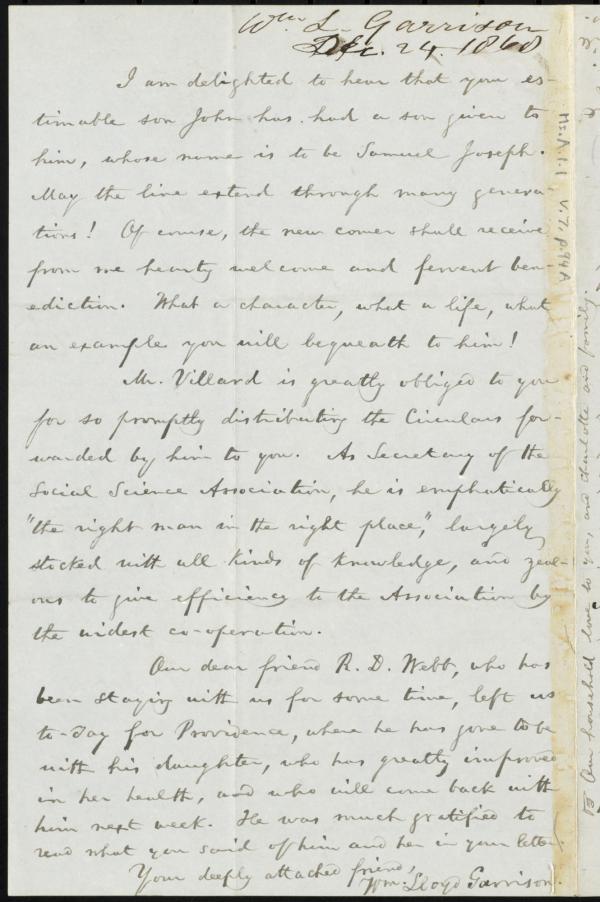 Wm L. Garrison
Dec. 24. 1868
I am delighted to hear that your es-
timable son John has had a son given to
him, whose name is to be Samuel Joseph.
May the line extend through many genera-
tions! Of course, the new comer shall receive
from me hearty welcome and fervent ben-
ediction. What a character, what a life, what
an example you will bequeath to him!
Mr. Villard is greatly obliged to you
for so promptly distributing the Circulars for-
warded by him to you. As Secretary of the
Social Science Association, he is emphatically
"the right man in the right place," largely
stocked with all kinds of knowledge, and zeal-
ous to give efficiency to the Association by
the widest co-operation.
Our dear friend R. D. Webb, who has
been staying with us for some time, left us
to-day for Providence, where he has gone to be
with his daughter, who has greatly improved
in her health, and who will come back with
him next week. He was much gratified to
read what you said of him and her in your letter.
Your deeply attached friend,
Wm. Lloyd Garrison.
Ms. A. 1. 1 V. 7, p. 94A
Our household love to you, and Charlotte and family.